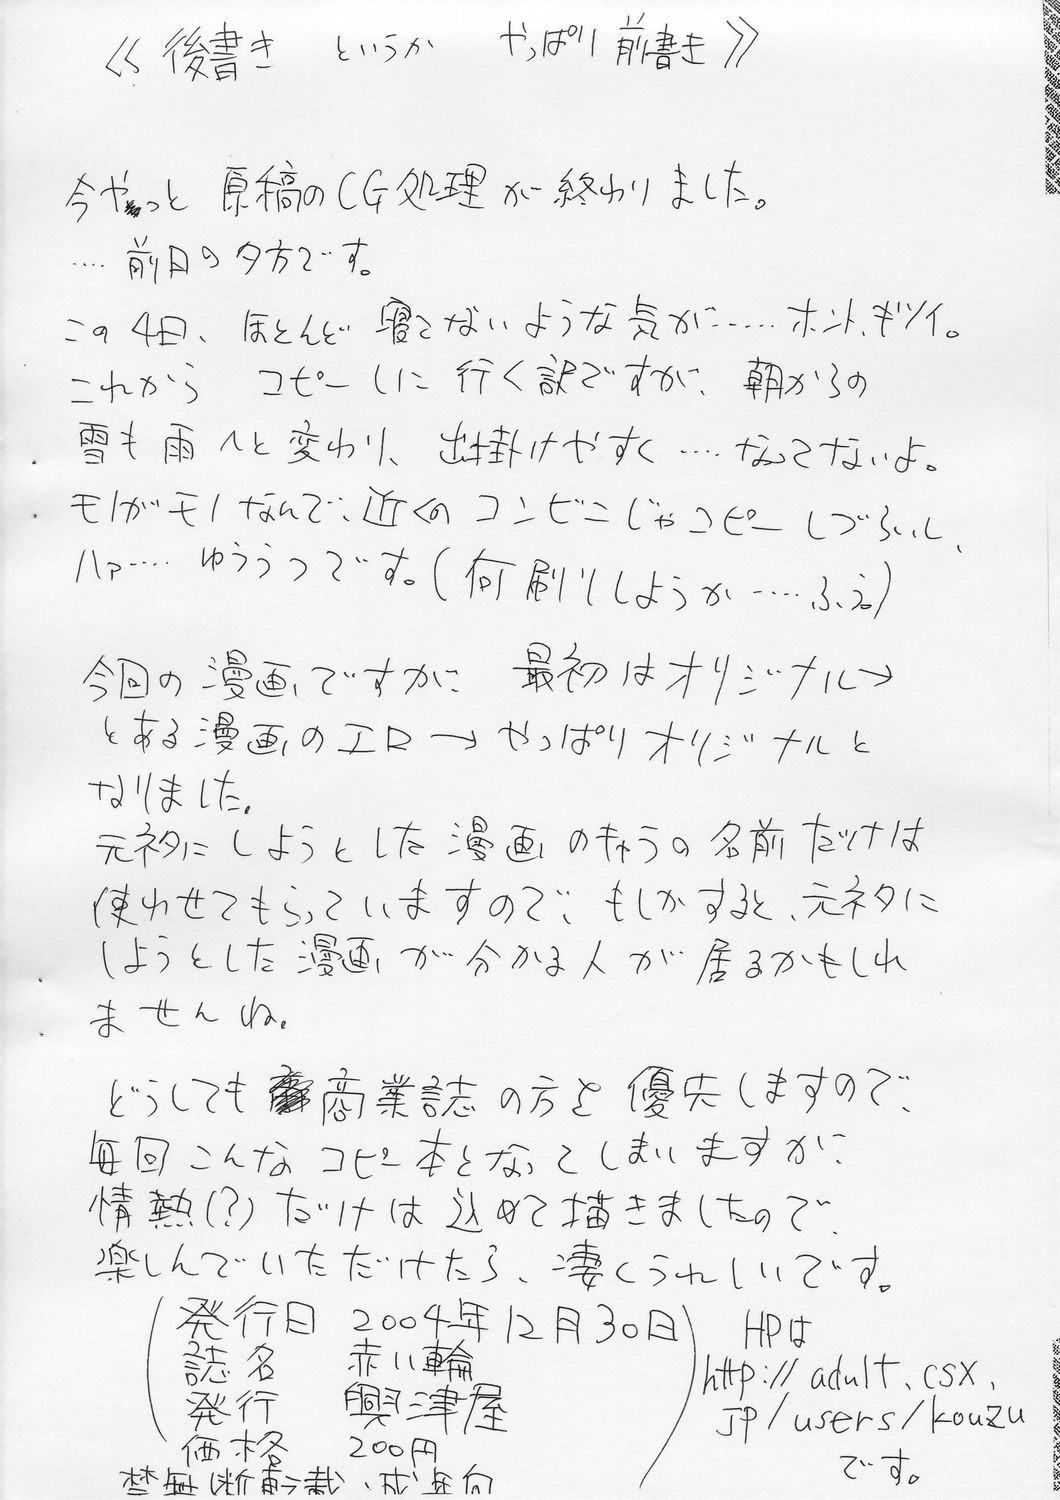 ≪後書き というか やっぱり前書き≫
今やっと 原稿のCG処理が終わりました。
…. 前日の夕方です。
この4日、ほとんど 寝てないような気が……ホント、キツイ。
これから コピーしに行く訳ですが、朝からの
雪も雨へと変わり、出掛けやすく….なってないよ。
モノがモノなんで、近くのコンビニじゃコピーしづらいし、
ハァ…. ゆううつです。(何刷りしようか…..ふえ。)
今回の漫画ですが、 最初はオリジナル→
とある漫画のエロ→やっぱりオリジナルと
なりました。
元ネタにしようとした漫画のキャラの名前だけは
使わせてもらっていますので、もしかすると、元ネタに
しようとした漫画が分かる人が居るかもしれ
ませんね。
どうしても商業誌の方を優先しますので、
毎回こんなコピー本となってしまいますが、
情熱(?)だけは込めて描きましたので、
楽しんでいただけたら、凄くうれしいです。
発行日 2004年12月30日
誌名 赤い輪
発行 興津屋
価格 200円
禁無断転載、成年向
HPは
http://adult.csx.
jp/users/kouzu
です。